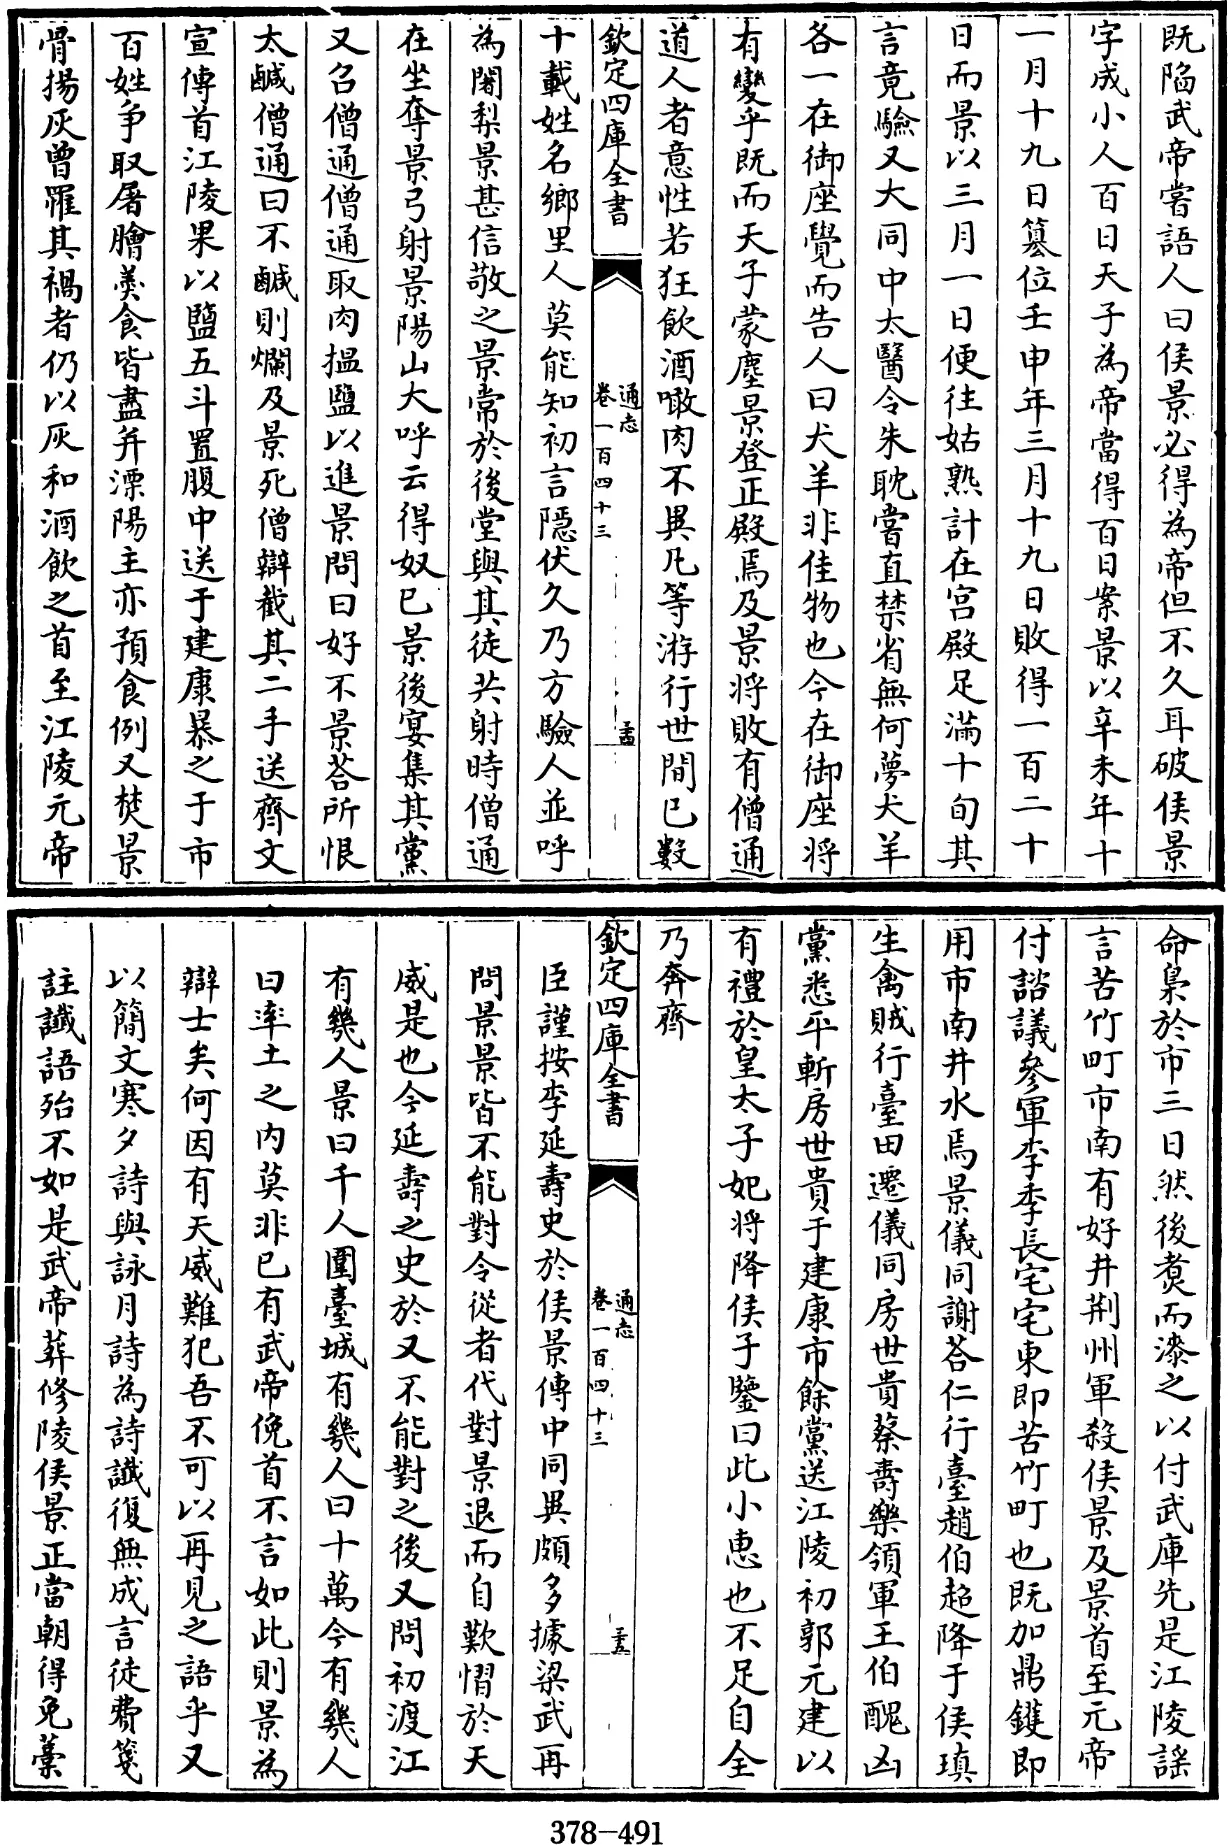 既陷武帝嘗語人曰侯景必得為帝但不久耳破侯景
字成小人百日天子為帝當得百日案景以辛未年十
一月十九日簒位壬申年三月十九日敗得一百二十
日而景以三月一日便往姑熟計在宮殿足滿十旬其
言竟驗又大同中太醫令朱耽嘗直禁省無何夢犬羊
各一在御座覺而告人曰犬羊非佳物也今在御座將
有變乎既而天子蒙塵景登正殿焉及景將敗有僧通
道人者意性若狂飲酒噉肉不異凡等游行世間已數
欽定四庫全書
通志
卷一百四十三
三十四
十載姓名鄉里人莫能知初言隱伏久乃方驗人並呼
為闍棃景甚信敬之景常於後堂與其徒共射時僧通
在坐奪景弓射景陽山大呼云得奴已景後宴集其黨
又召僧通僧通取肉揾鹽以進景問曰好不景荅所恨
太鹹僧通曰不鹹則爛及景死僧辯截其二手送齊文
宣傳首江陵果以鹽五斗置腹中送于建康暴之于市
百姓争取屠膾羮食皆盡并溧陽主亦預食例又焚景
骨揚灰曾罹其禍者仍以灰和酒飲之首至江陵元帝
命梟於市三日然後煑而漆之以付武庫先是江陵謡
言苦竹町市南有好井荆州軍殺侯景及景首至元帝
付諮議參軍李季長宅宅東即苦竹町也既加鼎鑊即
用市南井水焉景儀同謝荅仁行臺趙伯超降于侯瑱
生禽賊行臺田遷儀同房世貴蔡壽樂領軍王伯醜凶
黨悉平斬房世貴于建康市餘黨送江陵初郭元建以
有禮於皇太子妃將降侯子鑒曰此小恵也不足自全
乃奔齊
欽定四庫全書
通志
卷一百四十三
三十五
臣謹按李延壽史於侯景傳中同異頗多據梁武再
問景景皆不能對令從者代對景退而自歎慴於天
威是也今延壽之史於又不能對之後又問初渡江
有幾人景曰千人圍臺城有幾人曰十萬今有幾人
曰率土之内莫非己有武帝俛首不言如此則景為
辯士矣何因有天威難犯吾不可以再見之語乎又
以簡文寒夕詩與詠月詩為詩讖復無成言徒費箋
註讖語殆不如是武帝葬修陵侯景正當朝得免藁
378-491